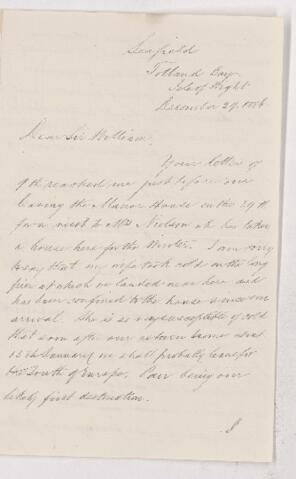 Seafield
Totland Bay
Isle of Wight
December 29. 1886
Dear Sir William,
Your letter of
9th reached me just before our
leaving the Manor House on the 24th
for a visit to Mrs Neilson who has taken
a house here for the Winter. I am sorry
to say that my wife took cold on the long
pier at which we landed near here and
has been confined to the house since our
arrival. She is so susceptible of cold
that soon after our return home about
15th January we shall probably leave for
South of Europe, Pau being our
likely first destination.